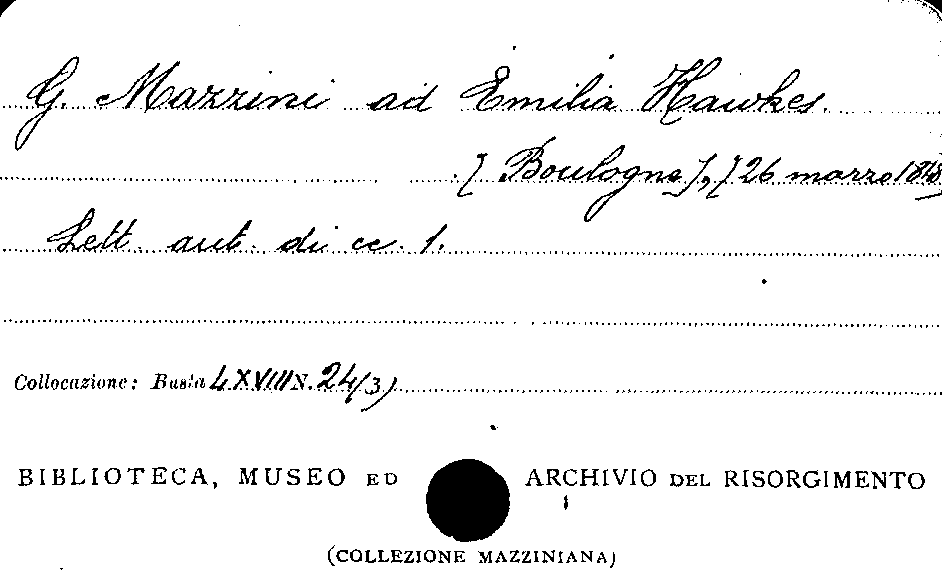 G. Mazzini ad Emilia Hawkes.
[Boulogne], [26 marzo 1848]
Lett. aut. di cc. 1.
Collocazione: Busta LXVIII N. 24(3)
BIBLIOTECA, MUSEO ED ARCHIVIO DEL RISORGIMENTO
(COLLEZIONE MAZZINIANA)